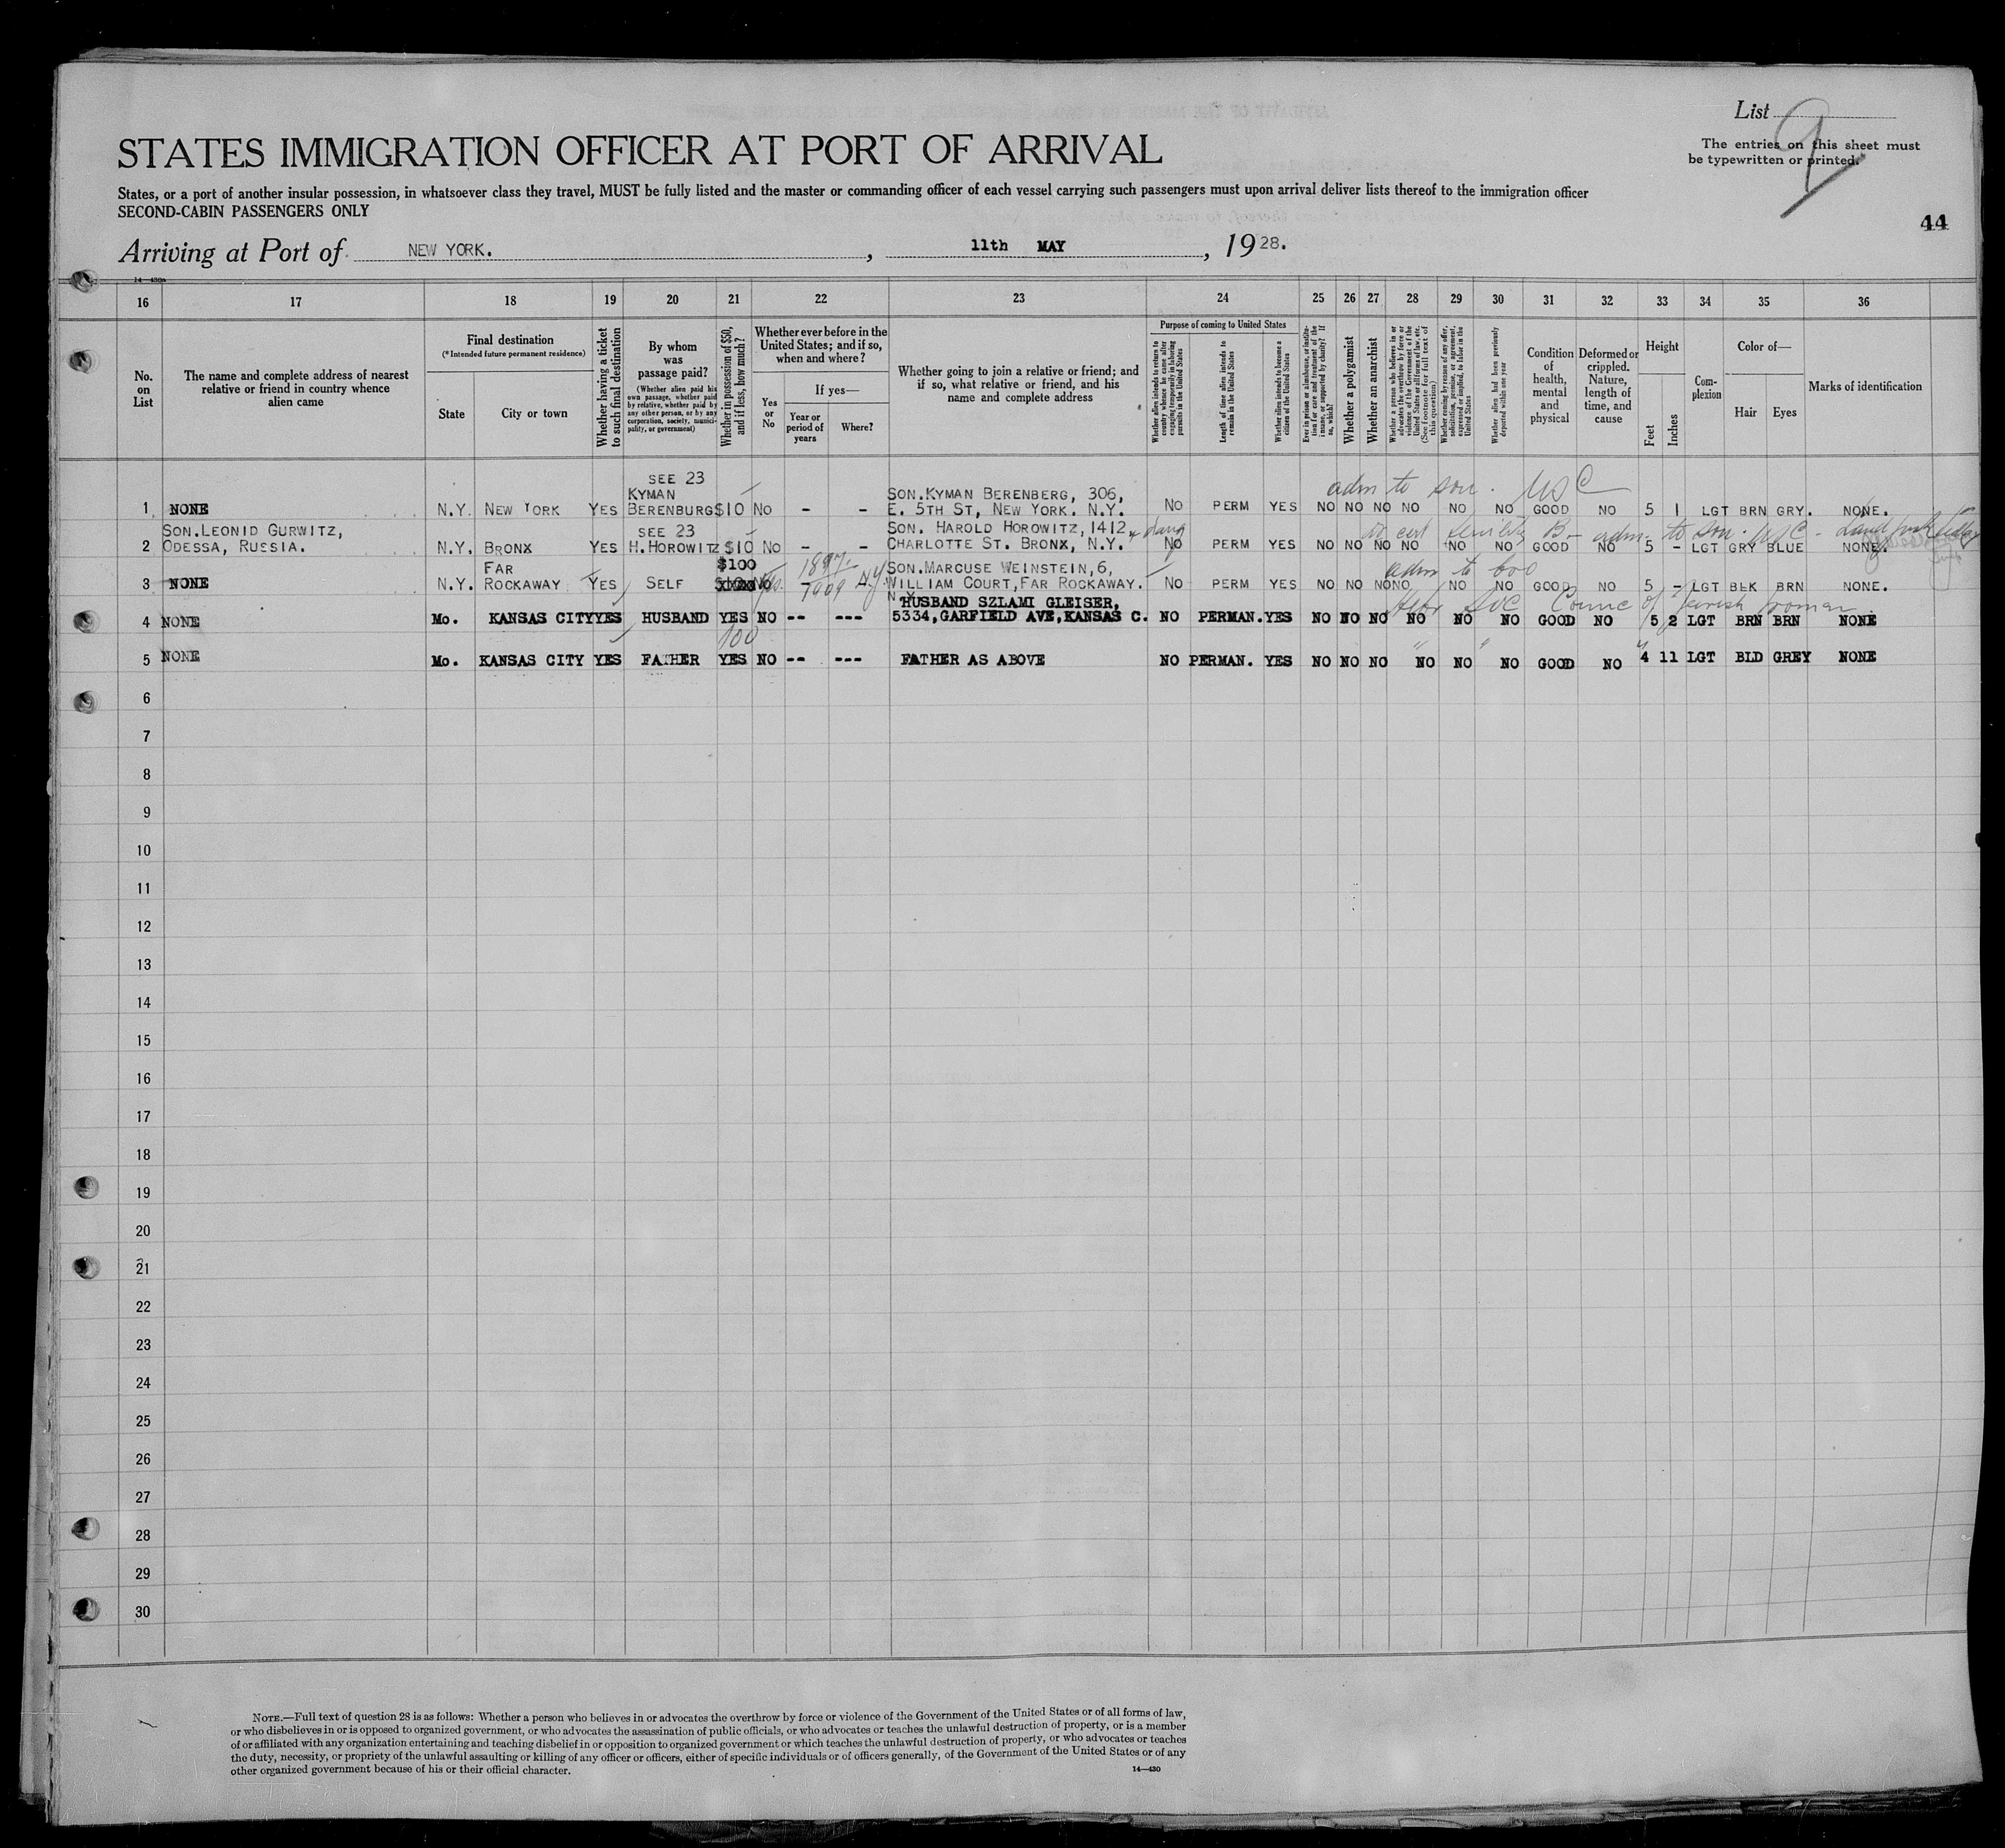 List 9
The entries on this sheet must
be typewritten or printed.
STATES IMMIGRATION OFFICER AT PORT OF ARRIVAL
States, or a port of another insular possession, in whatsoever class they travel, MUST be fully listed and the master or commanding officer of each vessel carrying such passengers must upon arrival deliver lists thereof to the immigration officer
SECOND-CABIN PASSENGERS ONLY
44
Arriving at Port of NEW YORK. , 11th MAY , 1928.
14—430a
16 17 18 19 20 21 22 23 24 25 26 27 28 29 30 31 32 33 34 35 36
No. on List
The name and complete address of nearest relative or friend in country whence alien came
Final destination
(*Intended future permanent residence)
State
City or town
Whether having a ticket to such final destination
By whom was passage paid?
(Whether alien paid his own passage, whether paid by relative, whether paid by any other person, or by any corporation, society, municipality, or government)
Whether in possession of $50, and if less, how much?
Whether ever before in the United States; and if so, when and where?
Yes or No
If yes—
Year or period of years
Where?
Whether going to join a relative or friend; and if so, what relative or friend, and his name and complete address
Purpose of coming to United States
Whether alien intends to return to country whence he came after engaging temporarily in laboring pursuits in the United States
Length of time alien intends to remain in the United States
Whether alien intends to become a citizen of the United States
Ever in prison or almshouse, or institution for care and treatment of the insane, or supported by charity? If so, which?
Whether a polygamist
Whether an anarchist
Whether a person who believes in or advocates the overthrow by force or violence of the Government of the United States or all forms of law, etc. (See footnote for full text of this question)
Whether coming by reason of any offer, solicitation, promise, or agreement, expressed or implied, to labor in the United States
Whether alien had been previously deported within one year
Condition of health, mental and physical
Deformed or crippled. Nature, length of time, and cause
Height
Feet
Inches
Complexion
Color of—
Hair
Eyes
Marks of identification
SEE 23
adm to son. USC
1 NONE N.Y. NEW YORK YES KYMAN BERENBURG $10 NO - - SON. KYMAN BERENBERG, 306, E. 5TH ST, NEW YORK. N.Y. NO PERM YES NO NO NO NO NO NO GOOD NO 5 1 LGT BRN GRY. NONE.
SEE 23
2 SON. LEONID GURWITZ, ODESSA, RUSSIA. N.Y. BRONX YES H. HOROWITZ $10 NO - - SON. HAROLD HOROWITZ, 1412, CHARLOTTE ST. BRONX, N.Y. NO PERM YES NO NO NO NO NO NO GOOD NO 5 - LGT GRY BLUE NONE.
cert senility B- adm to son. USC
$100
adm to
3 NONE N.Y. FAR ROCKAWAY YES SELF NO 1897 1909 NY SON. MARCUSE WEINSTEIN, 6, WILLIAM COURT, FAR ROCKAWAY. N.Y. NO PERM YES NO NO NO NO NO NO GOOD NO 5 - LGT BLK BRN NONE.
Council of Jewish Women
4 NONE Mo. KANSAS CITY YES HUSBAND YES NO -- --- HUSBAND SZLAMI GLEISER, 5334, GARFIELD AVE, KANSAS C. NO PERMAN. YES NO NO NO NO NO NO GOOD NO 5 2 LGT BRN BRN NONE
100
5 NONE Mo. KANSAS CITY YES FATHER YES NO -- --- FATHER AS ABOVE NO PERMAN. YES NO NO NO NO NO NO GOOD NO 4 11 LGT BLD GREY NONE
6
7
8
9
10
11
12
13
14
15
16
17
18
19
20
21
22
23
24
25
26
27
28
29
30
NOTE.—Full text of question 28 is as follows: Whether a person who believes in or advocates the overthrow by force or violence of the Government of the United States or of all forms of law,
or who disbelieves in or is opposed to organized government, or who advocates the assassination of public officials, or who advocates or teaches the unlawful destruction of property, or is a member
of or affiliated with any organization entertaining and teaching disbelief in or opposition to organized government or which teaches the unlawful destruction of property, or who advocates or teaches
the duty, necessity, or propriety of the unlawful assaulting or killing of any officer or officers, either of specific individuals or of officers generally, of the Government of the United States or of any
other organized government because of his or their official character.
14—430